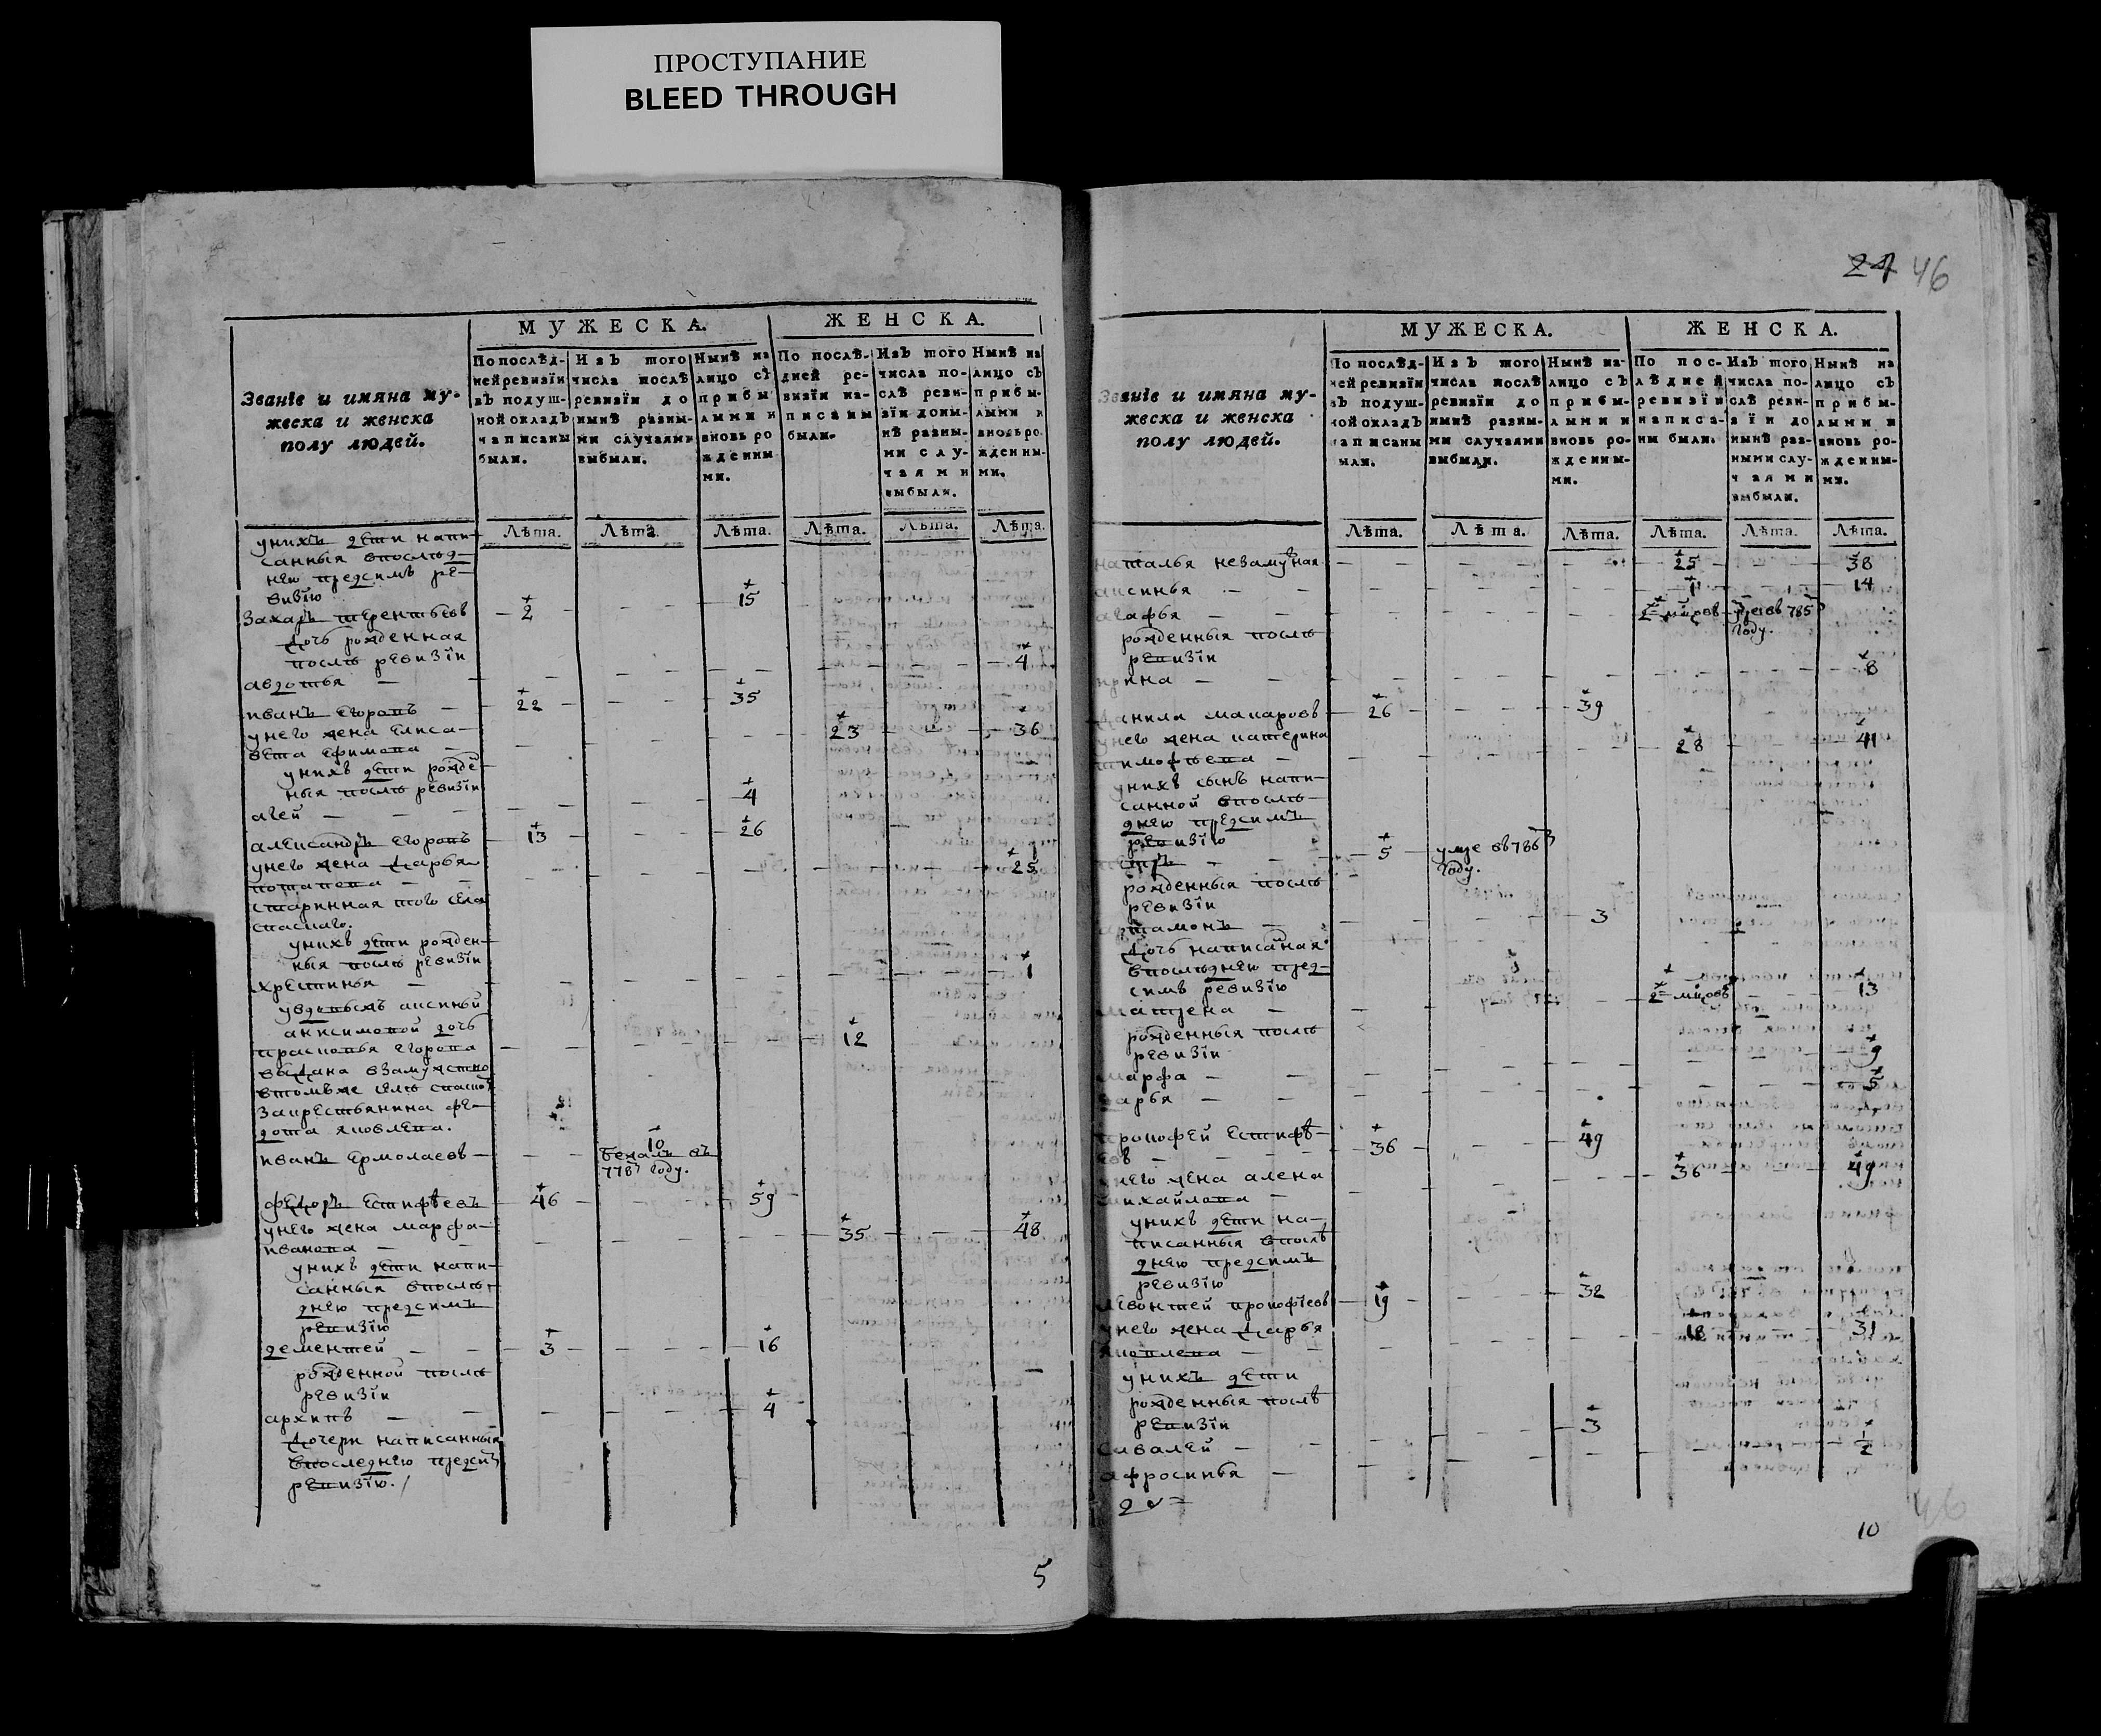 ПРОСТУПАНИЕ
BLEED THROUGH
МУЖЕСКА. ЖЕНСКА.
Званіе и имяна мужеска и женска полу людей.
По послѣдней ревизіи въ подушной окладъ написаны были.
Изъ того числа послѣ ревизіи до нынѣ разными случаями выбыли.
Нынѣ на лицо съ прибылыми и вновь рожденными.
По послѣдней ревизіи написаны были.
Изъ того числа послѣ ревизіи до нынѣ разными случаями выбыли.
Нынѣ на лицо съ прибылыми и вновь рожденными.
Лѣта. Лѣта. Лѣта. Лѣта. Лѣта. Лѣта.
унихъ дети напи-
санныя впослѣд-
нею предсимъ ре-
визїю
Захаръ терентьевъ 2 15
дочь рожденная
послѣ ревизїи
авдотья 4
иванъ егоровъ 22 35
унего жена елиса-
вета ефимова 23 36
унихъ дети рожден-
ныя послѣ ревизїи
агей 4
александръ егоровъ 13 26
унего жена дарья
потапова 25
старинная того села
спаскаго.
унихъ дети рожден-
ныя послѣ ревизїи
хрестинья 1
увдовы аксиньи
анисимовой дочь
прасковья егорова 12
выдана взамужство
втомъже селѣ
закрестьянина фе-
дота яковлева.
иванъ ермолаевъ 10
бежалъ въ
778 году.
федоръ естифѣевъ 46 59
унего жена марфа
иванова 35 48
унихъ дети напи-
санныя впослѣ-
днею предсимъ
ревизїю
дементей 3 16
рожденной послѣ
ревизїи
архипъ 4
дочери написанныя
впоследнею предсимъ
ревизїю.
5
24 46
МУЖЕСКА. ЖЕНСКА.
Званіе и имяна мужеска и женска полу людей.
По послѣдней ревизіи въ подушной окладъ написаны были.
Изъ того числа послѣ ревизіи до нынѣ разными случаями выбыли.
Нынѣ на лицо съ прибылыми и вновь рожденными.
По послѣдней ревизіи написаны были.
Изъ того числа послѣ ревизіи до нынѣ разными случаями выбыли.
Нынѣ на лицо съ прибылыми и вновь рожденными.
Лѣта. Лѣта. Лѣта. Лѣта. Лѣта. Лѣта.
наталья незамужная 25 38
аксинья 1 14
агафья 785
году.
рожденныя послѣ
ревизїи
ирина 8
данила макаровъ 26 39
унего жена катерина
тимофѣева 28 41
унихъ сынъ напи-
санной впослѣ-
днею предсимъ
ревизїю
5 умре въ 786
году.
рожденныя послѣ
ревизїи
артамонъ 3
дочь написаная
впослѣднею пред-
симъ ревизїю
матрена 13
рожденныя послѣ
ревизїи
марфа 9
дарья 5
прокофей естифѣ-
евъ 36 49
унего жена алена
михайлова 36 49
унихъ дети на-
писанныя впослѣ-
днею предсимъ
ревизїю
левонтей прокофїевъ 19 32
унего жена дарья
яковлева 18 31
унихъ дети
рожденныя послѣ
ревизїи
савалей 3
афросинья 1/2
46
10